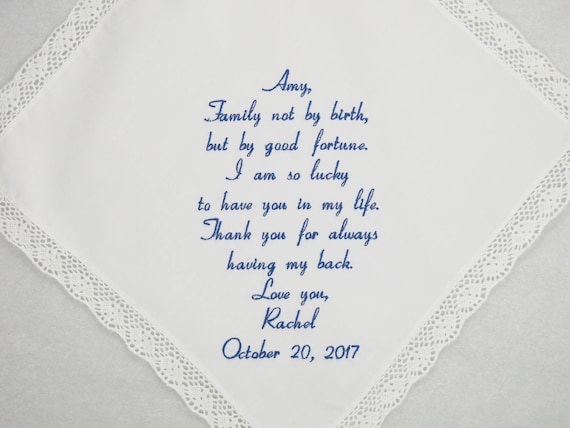 Amy,
Family not by birth,
but by good fortune.
I am so lucky
to have you in my life.
Thank you for always
having my back.
Love you,
Rachel
October 20, 2017